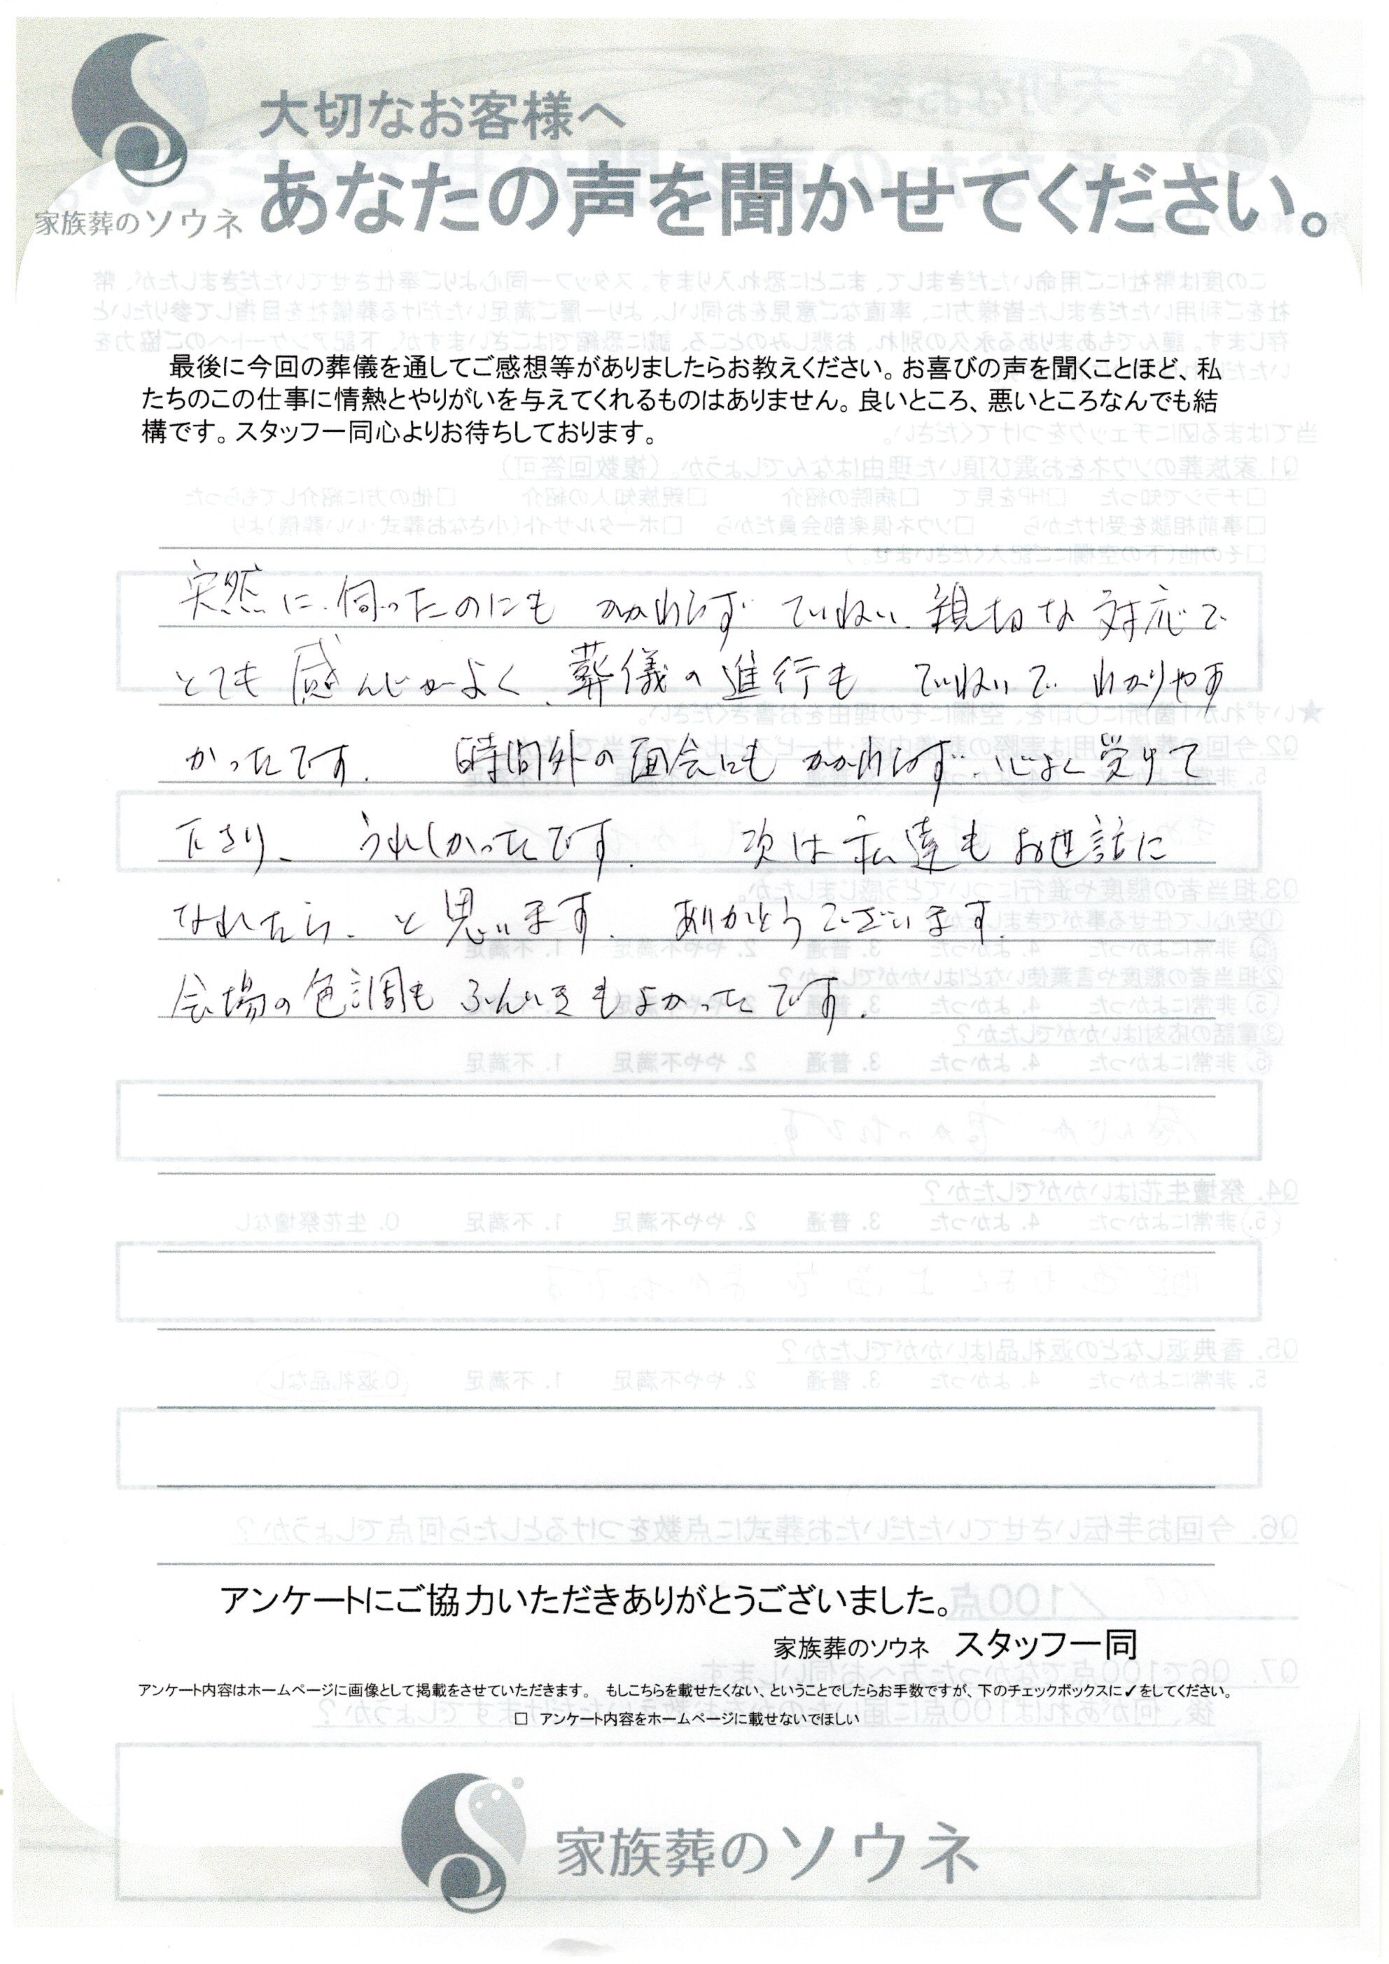 大切なお客様へ
家族葬のソウネ
あなたの声を聞かせてください。
最後に今回の葬儀を通してご感想等がありましたらお教えください。お喜びの声を聞くことほど、私
たちのこの仕事に情熱とやりがいを与えてくれるものはありません。良いところ、悪いところなんでも結
構です。スタッフ一同心よりお待ちしております。
突然に伺ったのにも かかわらず ていねい、親切な対応で
とても感んじがよく、葬儀の進行も ていねいで わかりやす
かったです。 時間外の面会にも かかわらず、心よく受けて
下さり、 うれしかったです。 次は私達もお世話に
なれたら、と思います。 ありがとうございます。
会場の色調も ふんいきもよかったです。
アンケートにご協力いただきありがとうございました。
家族葬のソウネ スタッフ一同
アンケート内容はホームページに画像として掲載をさせていただきます。 もしこちらを載せたくない、ということでしたらお手数ですが、下のチェックボックスに✓をしてください。
□ アンケート内容をホームページに載せないでほしい
家族葬のソウネ